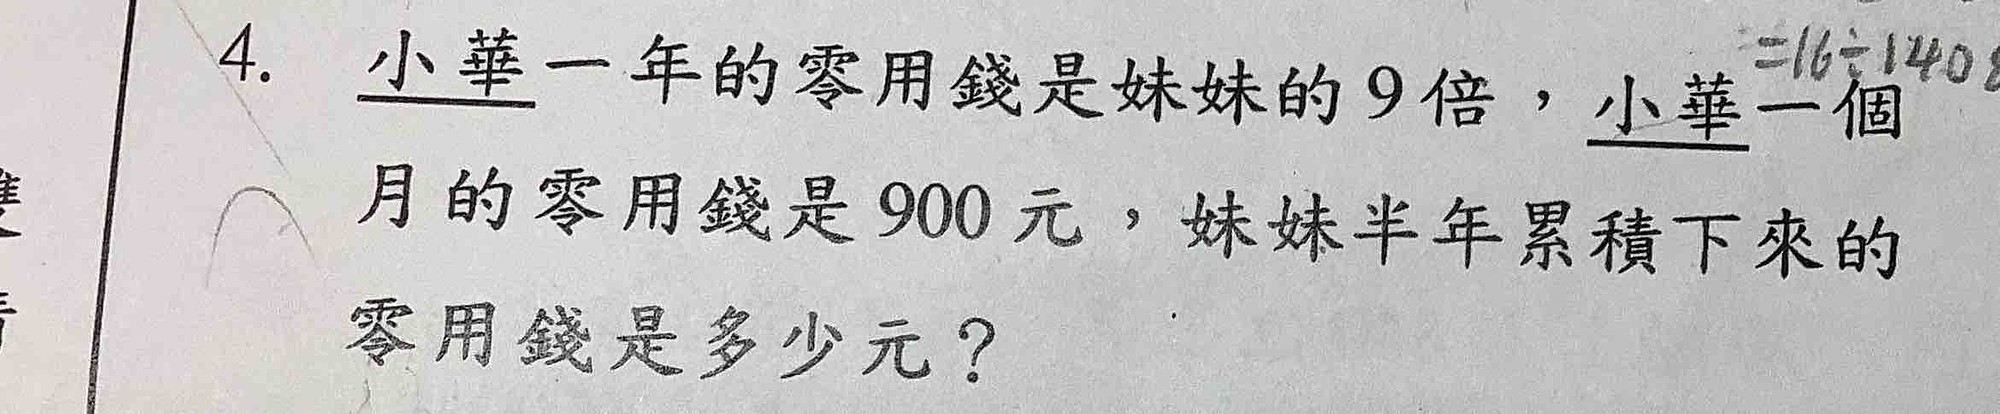 =16÷1408
4. 小華一年的零用錢是妹妹的9倍，小華一個
月的零用錢是900元，妹妹半年累積下來的
零用錢是多少元？